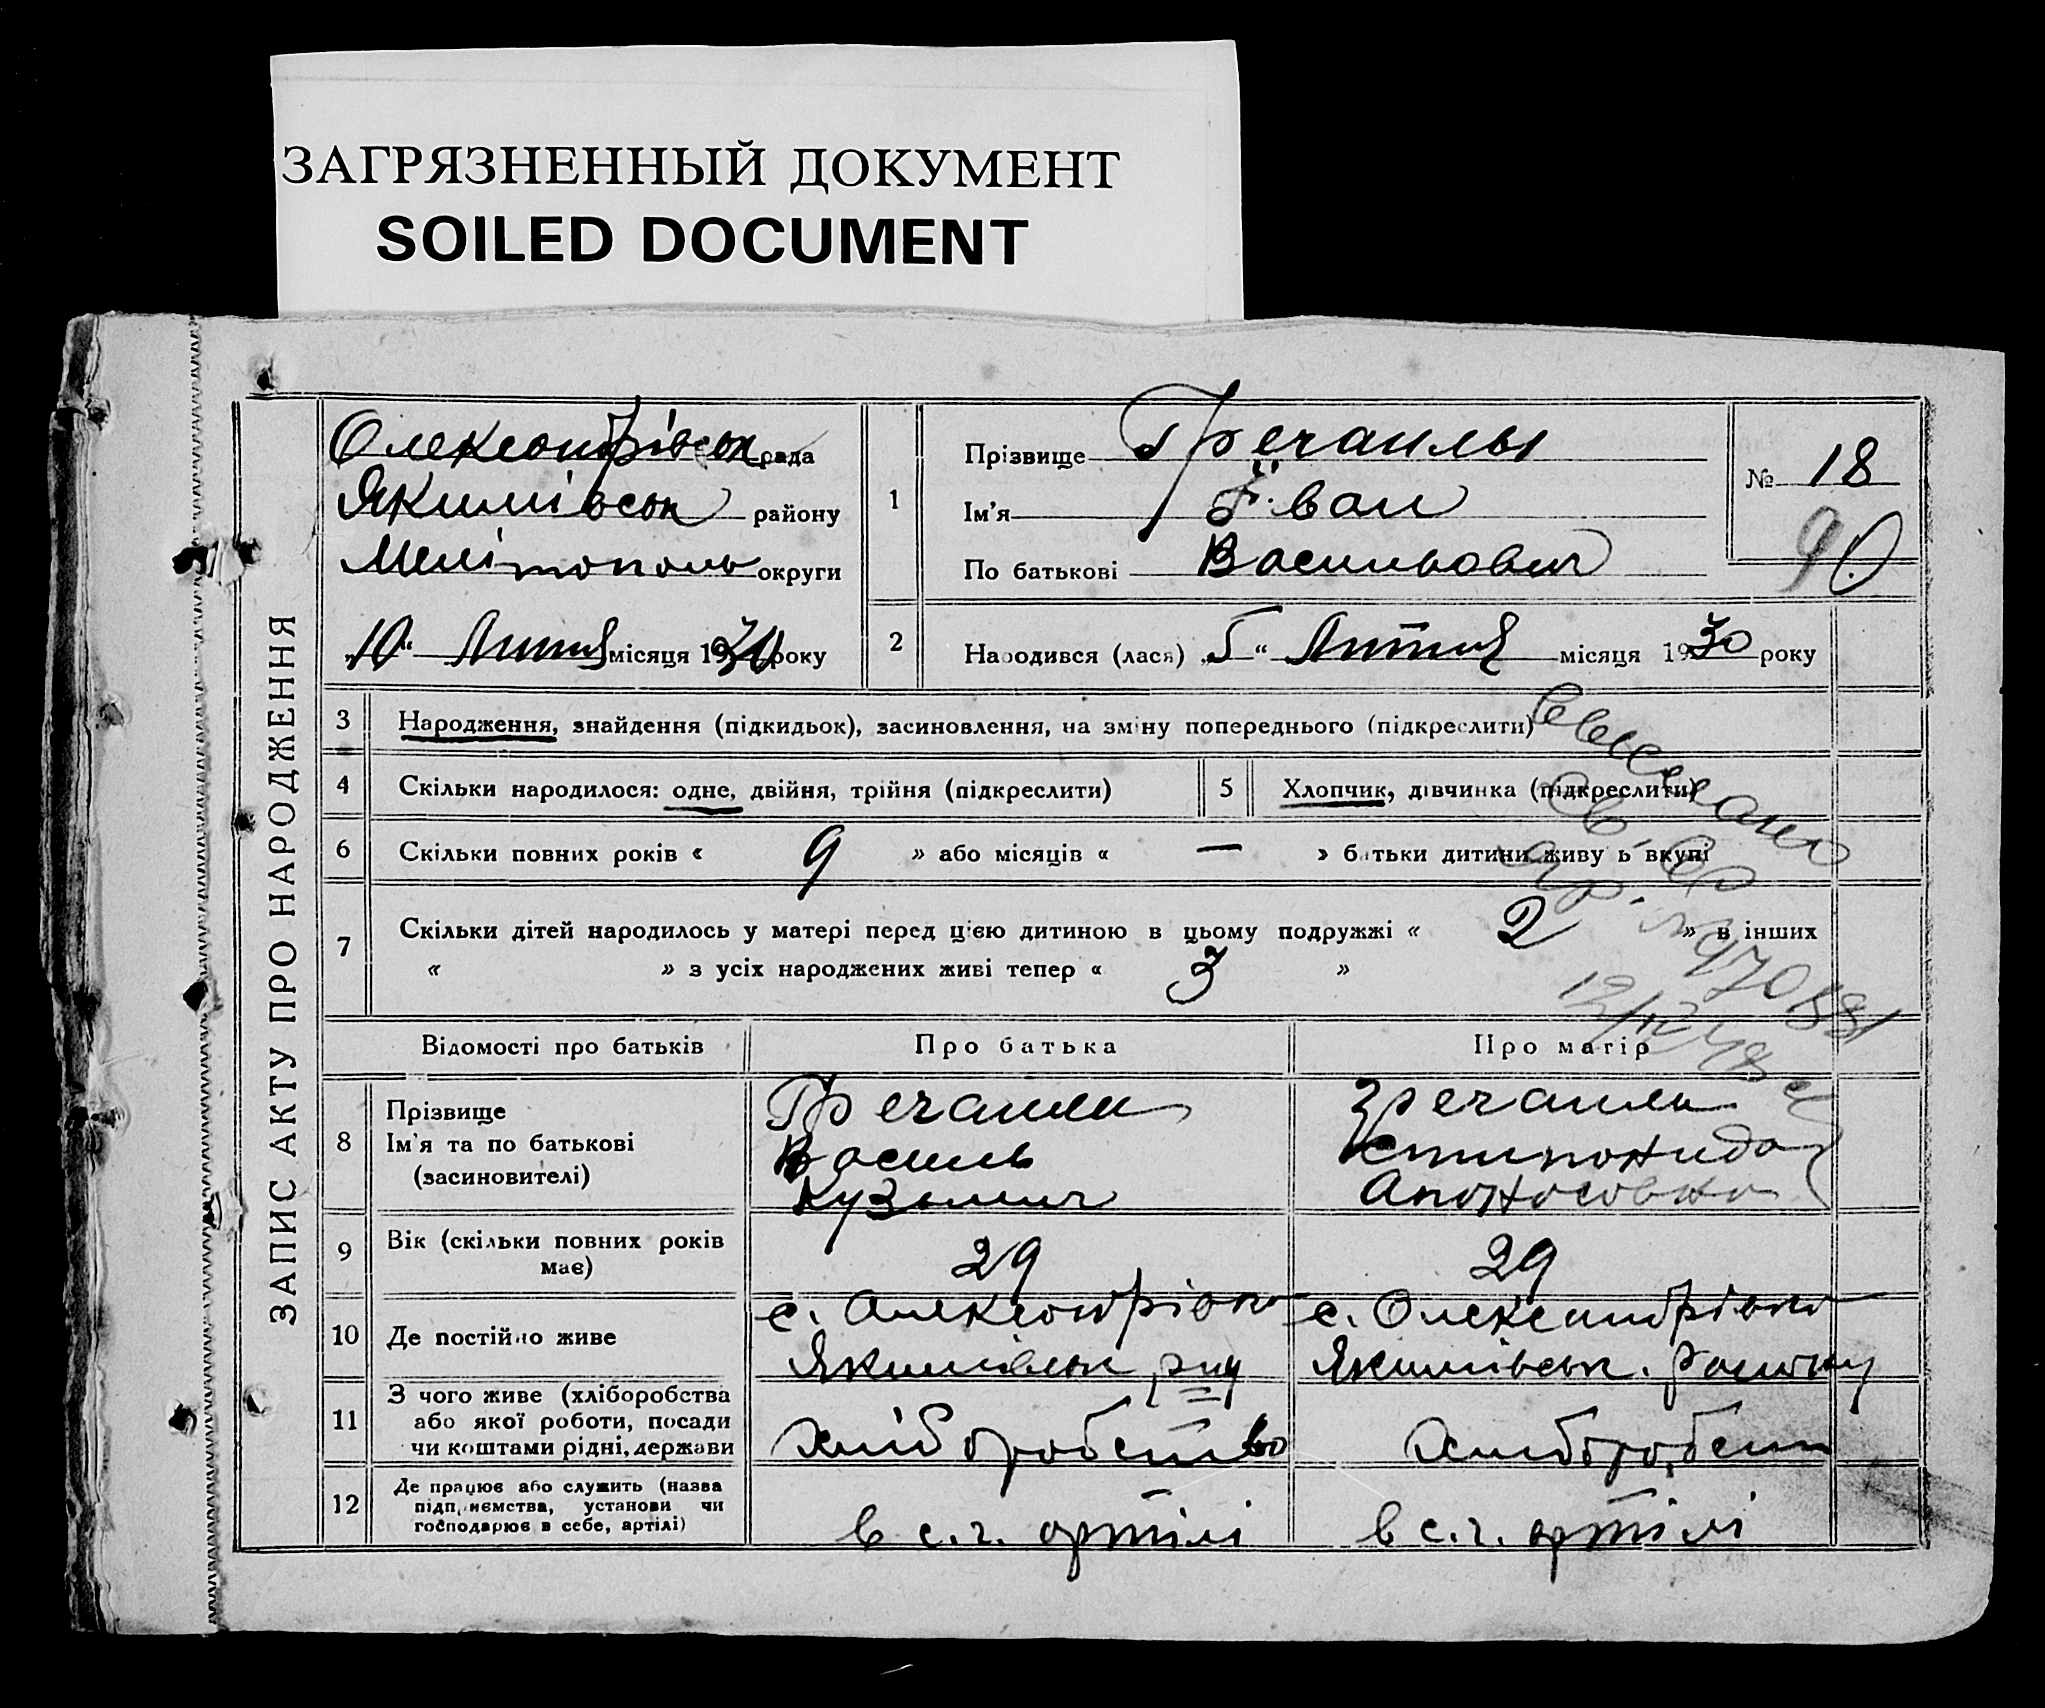 ЗАГРЯЗНЕННЫЙ ДОКУМЕНТ
SOILED DOCUMENT
ЗАПИС АКТУ ПРО НАРОДЖЕННЯ
Олександрівськ рада
Якимівськ району
Мелітополь округи
„10“ Лютия місяця 1930 року
1 Прізвище
Ім'я Іван
По батькові Васильович
№ 18
90
2 Народився (лася) „5“ Лютия місяця 1930 року
3 Народження, знайдення (підкидьок), засиновлення, на зміну попереднього (підкреслити)
4 Скільки народилося: одне, двійня, трійня (підкреслити)
5 Хлопчик, дівчинка (підкреслити)
6 Скільки повних років « 9 » або місяців « — » батьки дитини живуть вкупі
7 Скільки дітей народилось у матері перед цією дитиною в цьому подружжі « 2 » в інших
« » з усіх народжених живі тепер « 3 »
Відомості про батьків Про батька Про матір
8 Прізвище
Ім'я та по батькові
(засиновителі)
Василь
Кузьмич
Апонасовна
9 Вік (скільки повних років
має)
29
29
10 Де постійно живе
с. Олександрівка
Якимівськ р-ну
с. Олександрівка
Якимівськ. району
11 З чого живе (хліборобства
або якої роботи, посади
чи коштами рідні, держави
хліборобство
хліборобств
12 Де працює або служить (назва
підприємства, установи чи
господарює в себе, артілі)
в с.г. артілі
в с.г. артілі